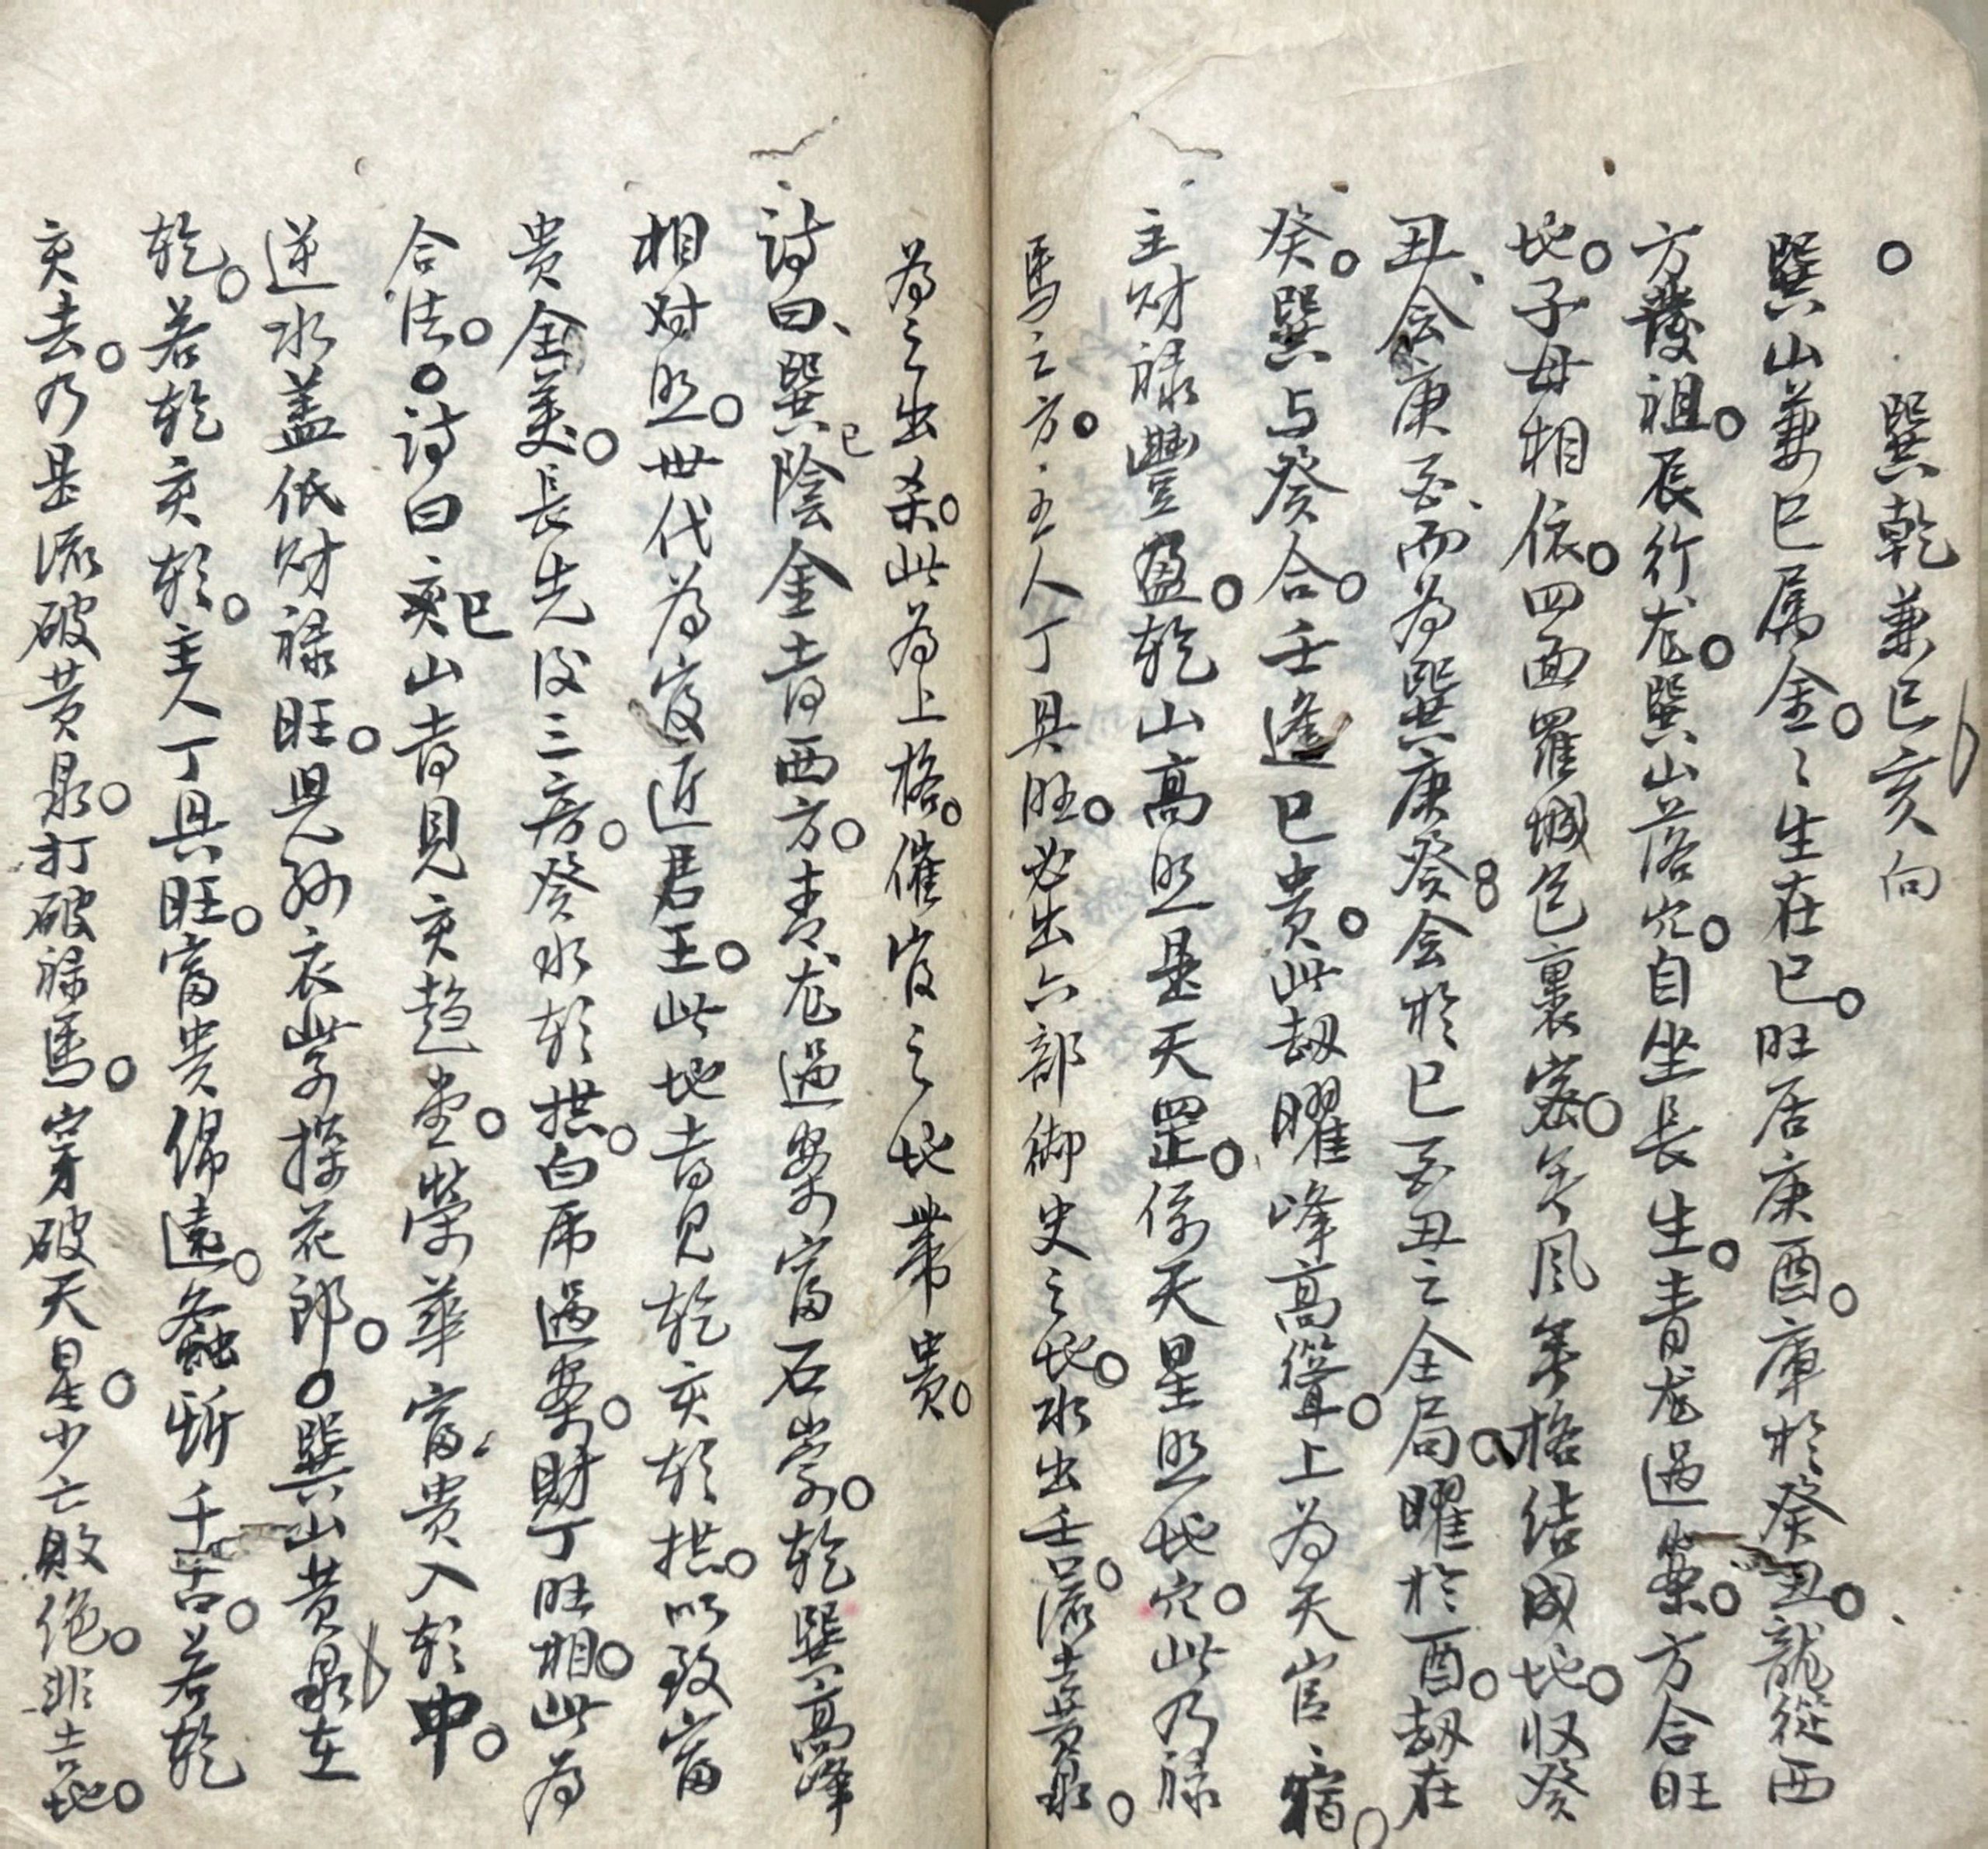 ○巽乾兼巳亥向
巽山兼巳属金。〻生在巳。旺居庚酉。庫於癸丑。龍從西
方發祖。辰行龙。巽山落穴。自坐長生。青龙過案。方合旺
地。子母相依。四面羅城包裹密。年風年格結成地。収癸
丑、会庚酉、而为巽庚癸。会於巳酉丑之全局。曜於酉。劫在
癸。巽与癸合。壬逢巳貴。此劫曜峰高聳。上为天官、宿。
主财祿豐盈。乾山高照是天罡。係天星照地穴。此乃祿
馬之方。主人丁具旺。必出六部御史之地。水出壬。流去黄泉。
为之出杀。此为上格。催官之地帶貴。
詩曰、巽巳陰金昔西方。青龙過案富石崇。乾巽高峰
相对照。世代为官近君王。此地昔見乾亥朝拱。以致富
貴金美。長先後三房。癸水朝拱。白虎過案。財丁旺相。此为
合法。○詩曰、巳山昔見亥趋堂。榮華富貴入朝中。
逆水盖低财禄旺。兒孙衣紫探花郎。○巽山黄泉在
乾。若乾亥朝。主人丁具旺。富貴綿遠。螽斯千古。若乾
亥去。乃是流破黄泉。打破禄馬。穿破天星。少亡敗絶。非吉地。